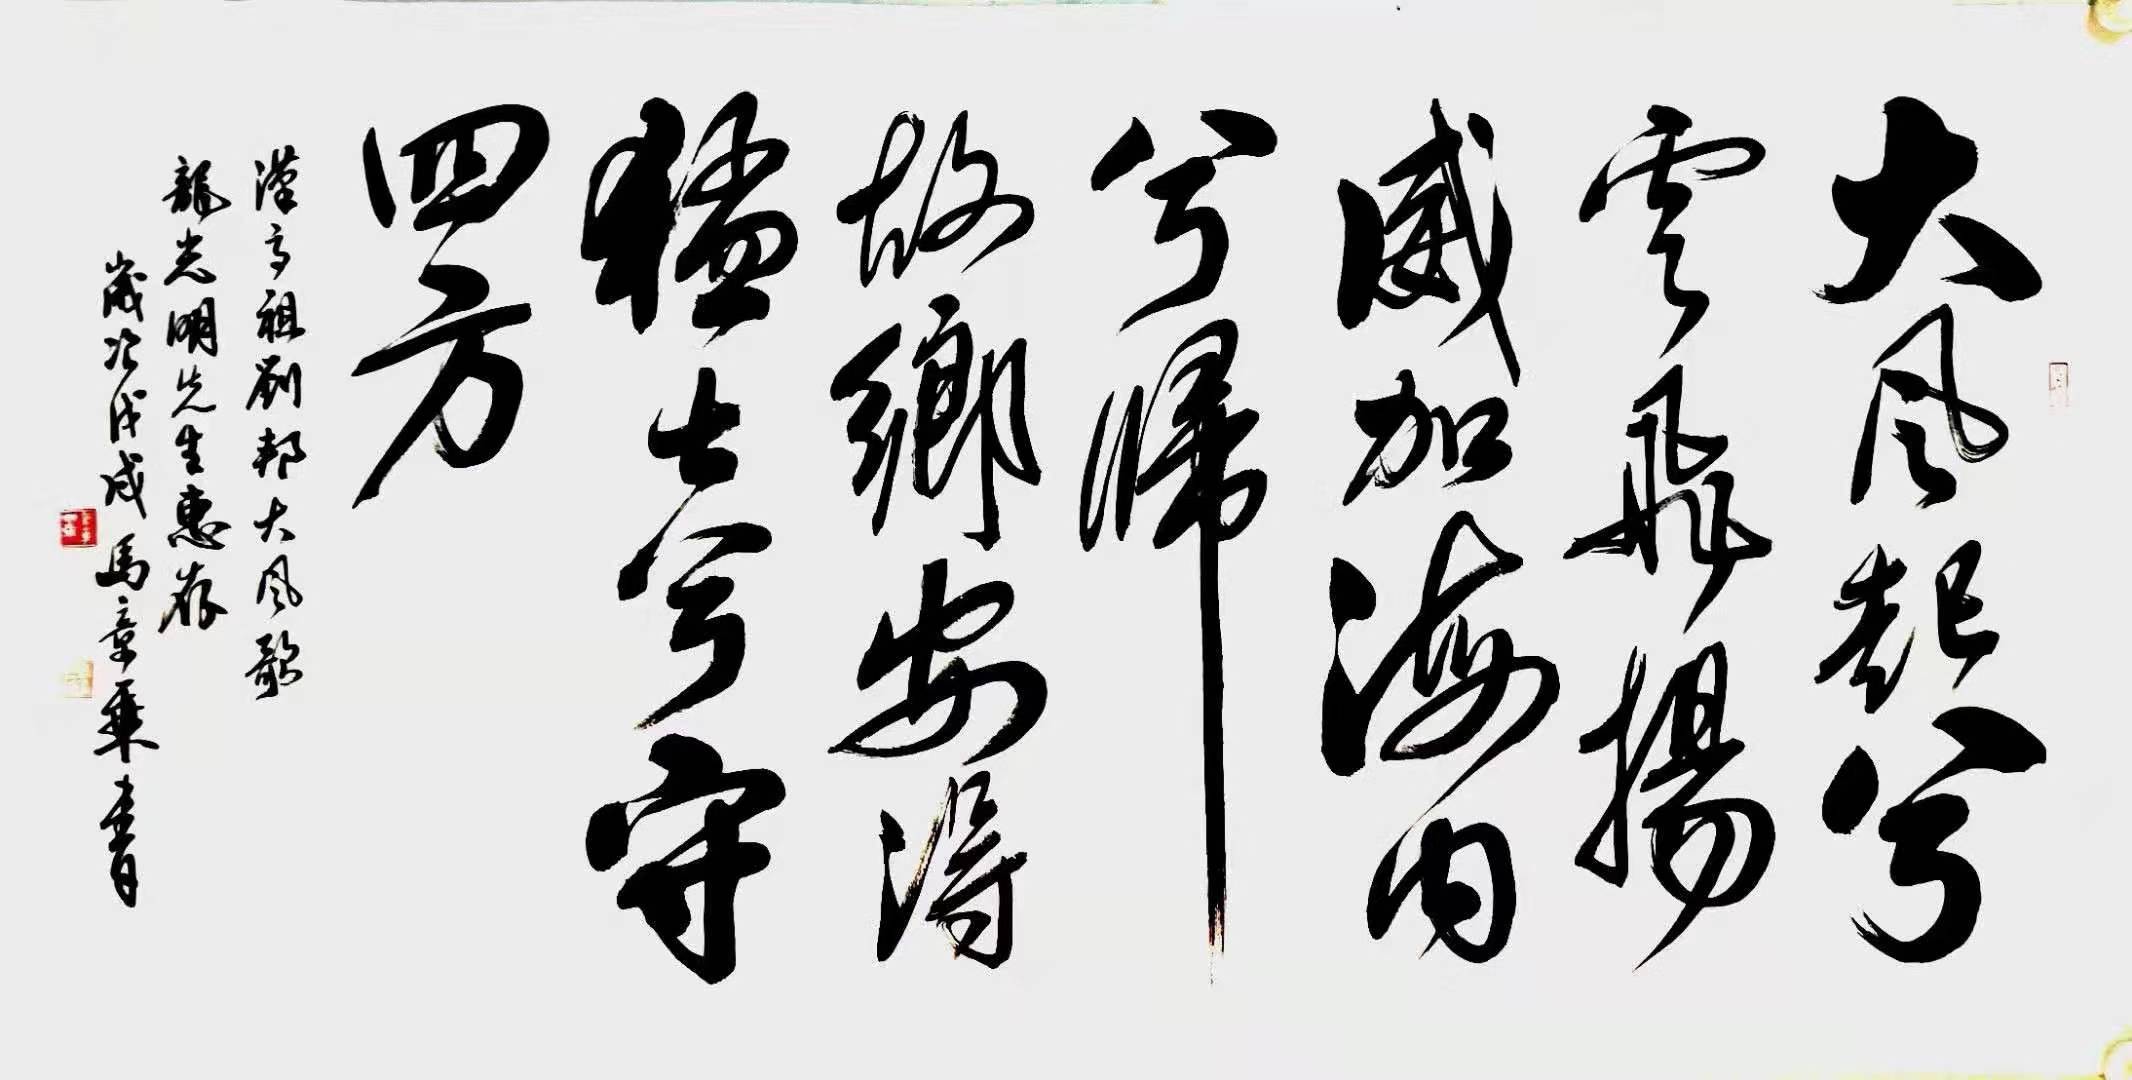 大风起兮
雲飛揚
威加海内
兮歸
故鄉安得
猛士兮守
四方
漢高祖劉邦大风歌
龍光明先生惠存
歲次戊戌馬章乘書